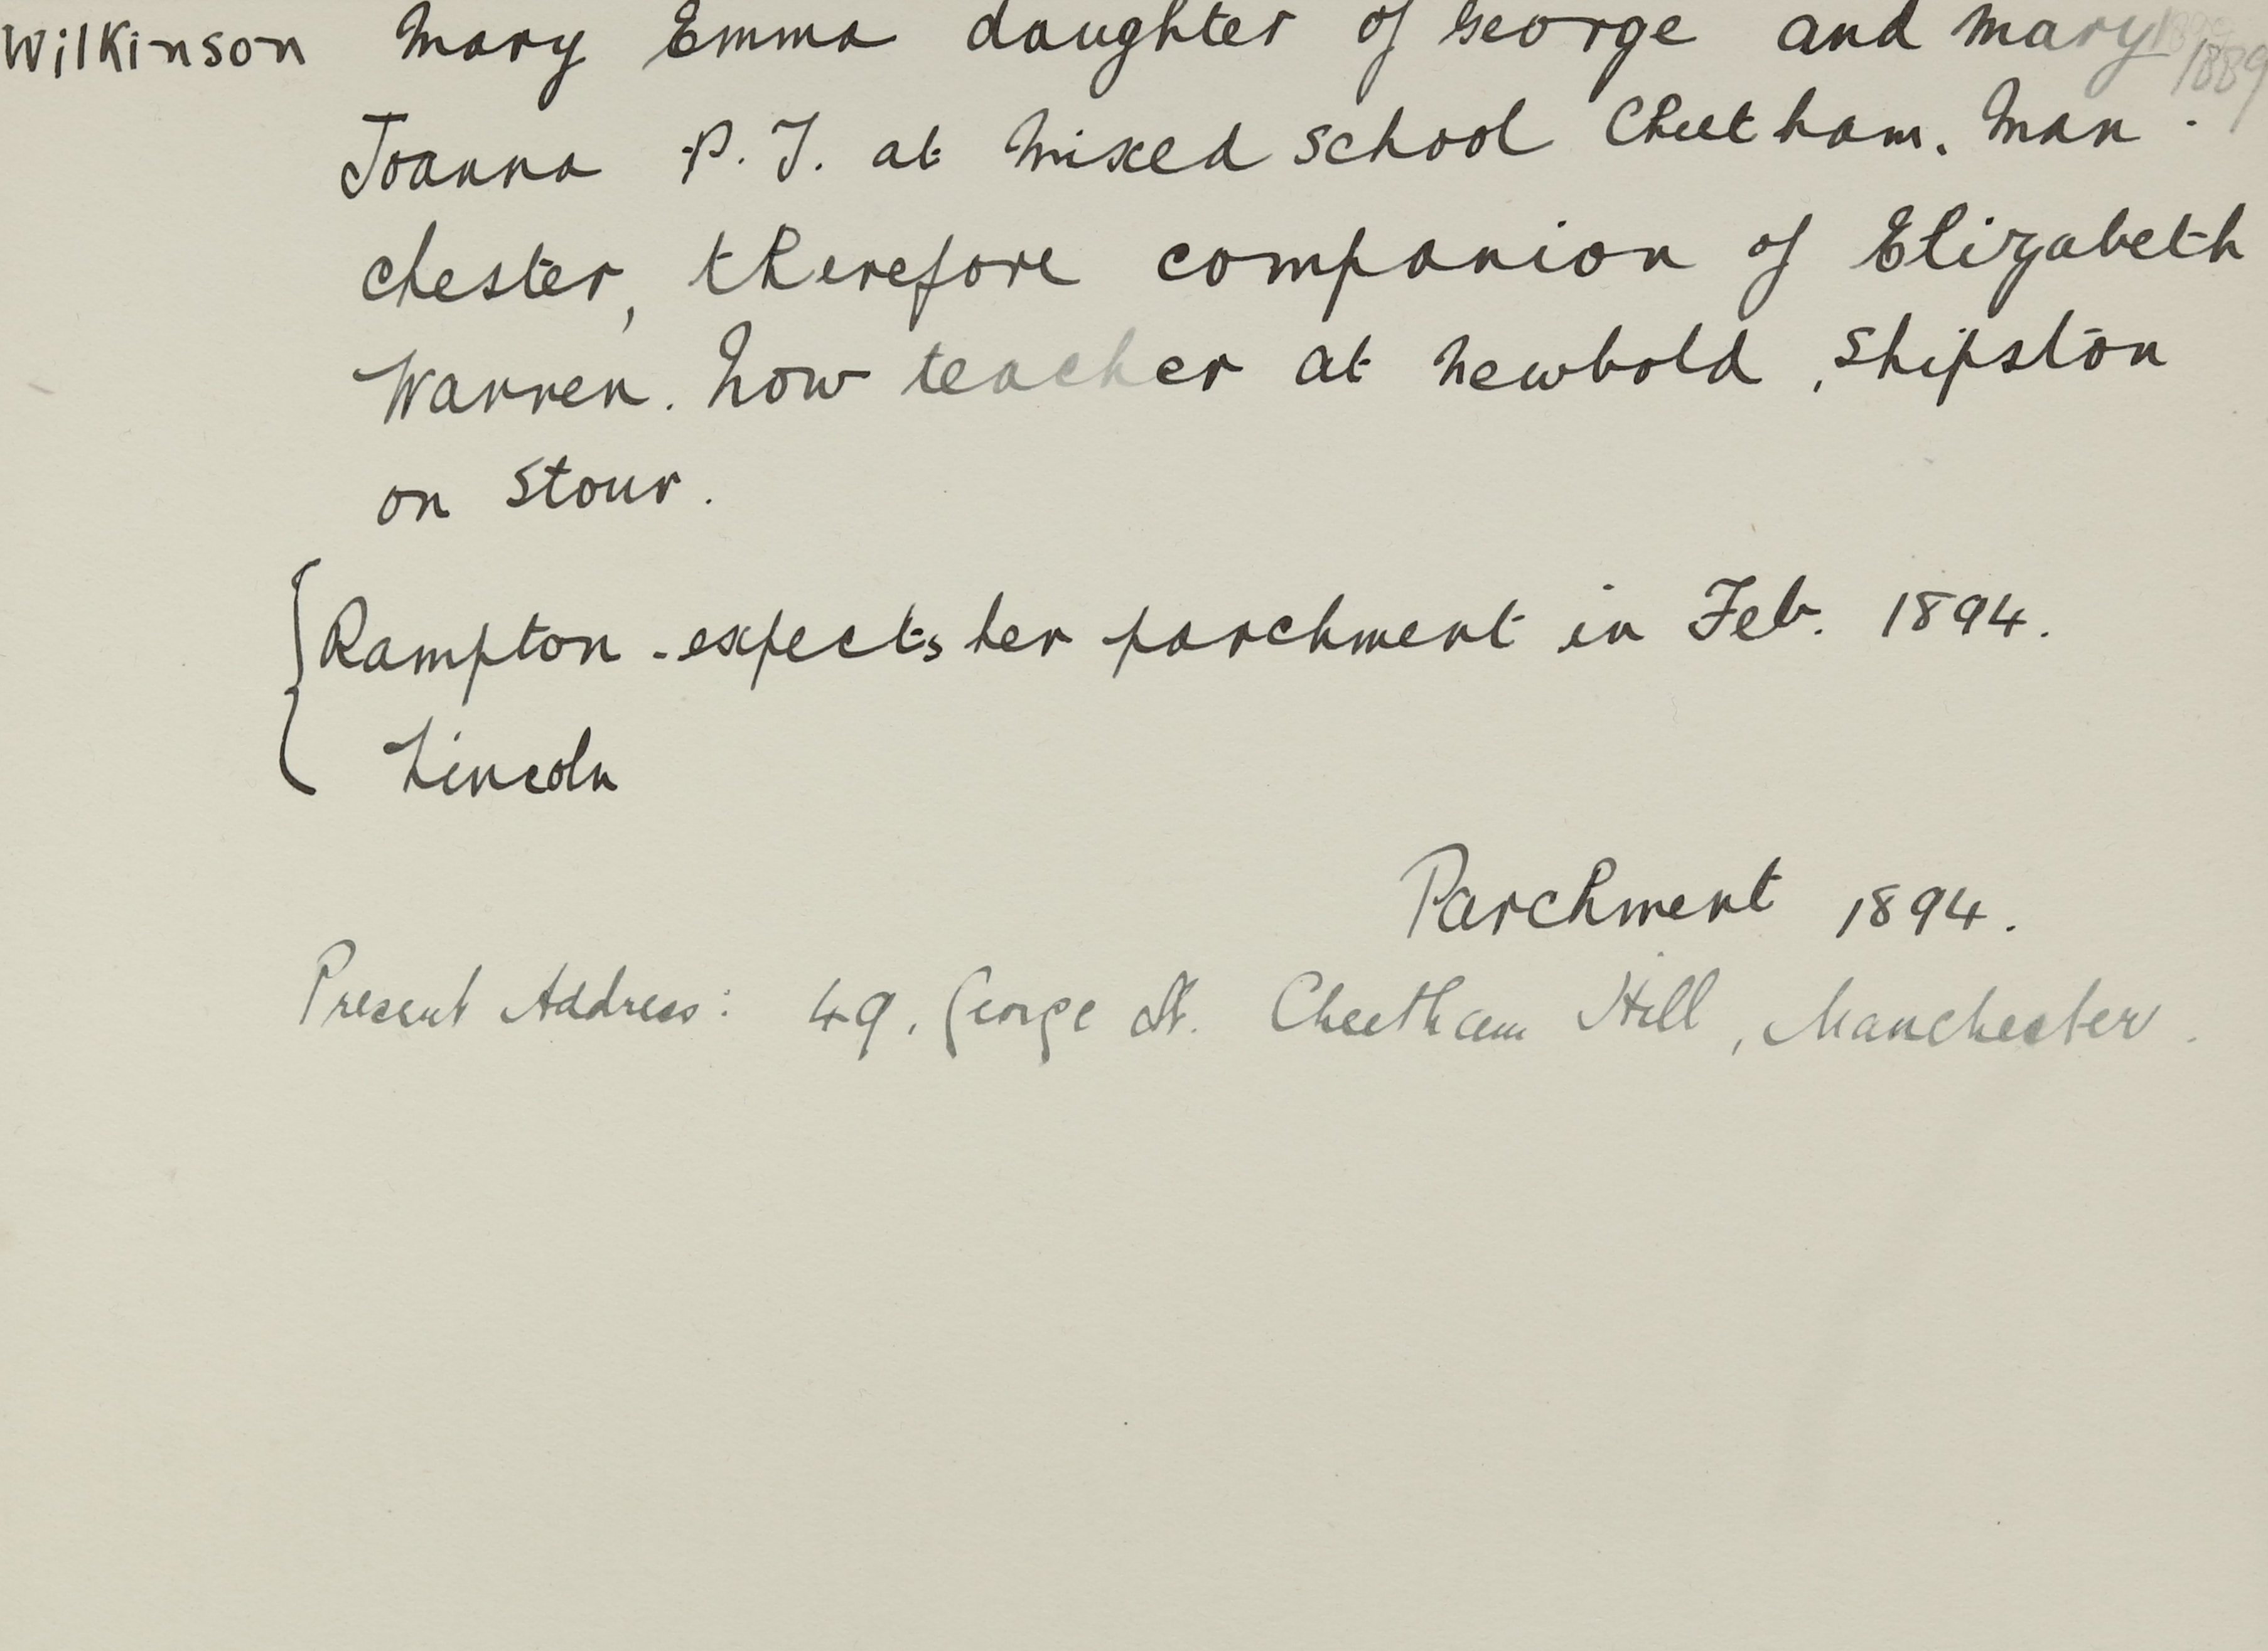 Wilkinson Mary Emma daughter of George and Mary 1889
Joanna P.T. at Mixed School Cheetham. Man-
chester, therefore companion of Elizabeth
Warren. Now teacher at Newbold, Shipston
on Stour.
Rampton - expects her parchment in Feb. 1894.
Lincoln
Parchment 1894.
Present Address: 49, George St. Cheetham Hill, Manchester.